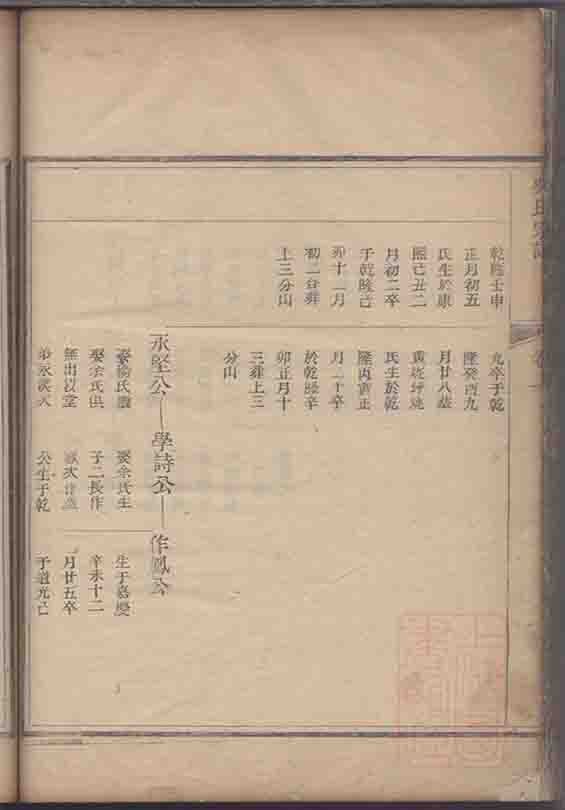 乾隆壬申
正月初五
氏生於康
熙己丑二
月初二卒
于乾隆己
卯十一月
初二合葬
上三分山
九卒于乾
隆癸酉九
月廿八葬
黃坭坪
氏生於乾
隆丙寅正
月二十卒
於乾隆辛
卯正月十
三葬上三
分山
永堅公—學詩公—作鳳公
娶余氏俱
無出以堂
娶余氏生
子二長作
次作
公生于乾
生于嘉慶
辛未十二
月廿五卒
于道光己